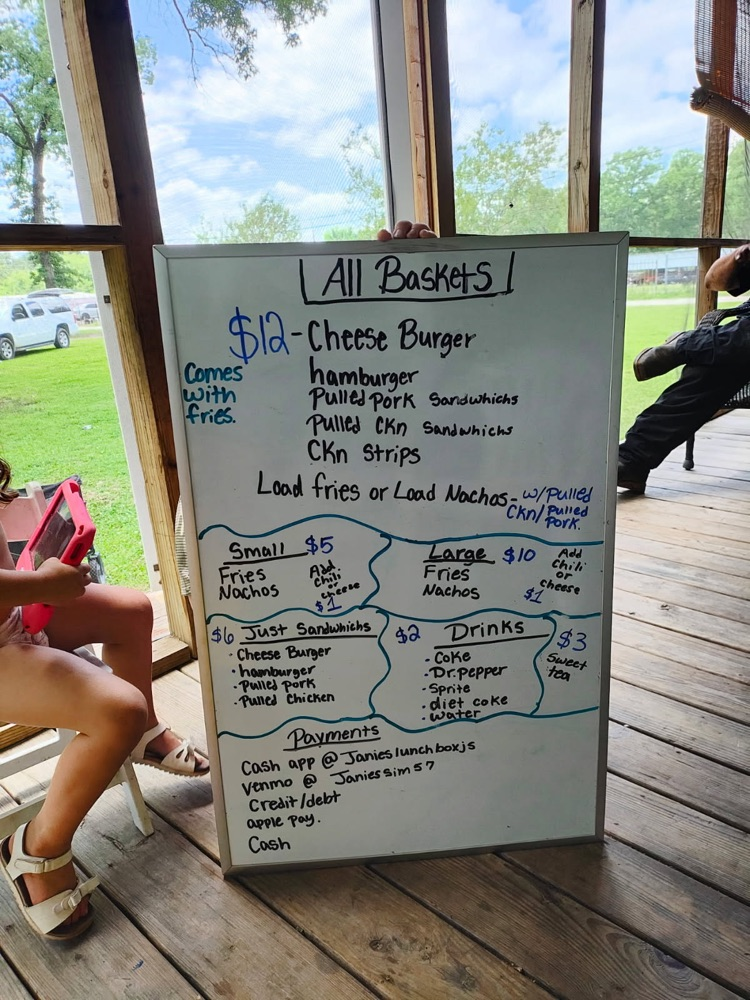 All Baskets
$12 - Cheese Burger
Comes with fries.
hamburger
Pulled Pork Sandwhichs
Pulled Ckn Sandwhichs
Ckn Strips
Load fries or Load Nachos - w/Pulled
Ckn/Pulled
Pork.
Small $5
Fries
Nachos
Add
Chili
or
cheese
$1
Large $10
Fries
Nachos
Add
Chili
or
cheese
$1
$6 Just Sandwhichs
· Cheese Burger
· hamburger
· Pulled Pork
· Pulled Chicken
$2 Drinks
· Coke
· Dr. Pepper
· Sprite
· diet coke
· water
$3
Sweet
tea
Payments
Cash app @ Janieslunchboxjs
Venmo @ Janiessim57
Credit/debt
apple pay.
Cash